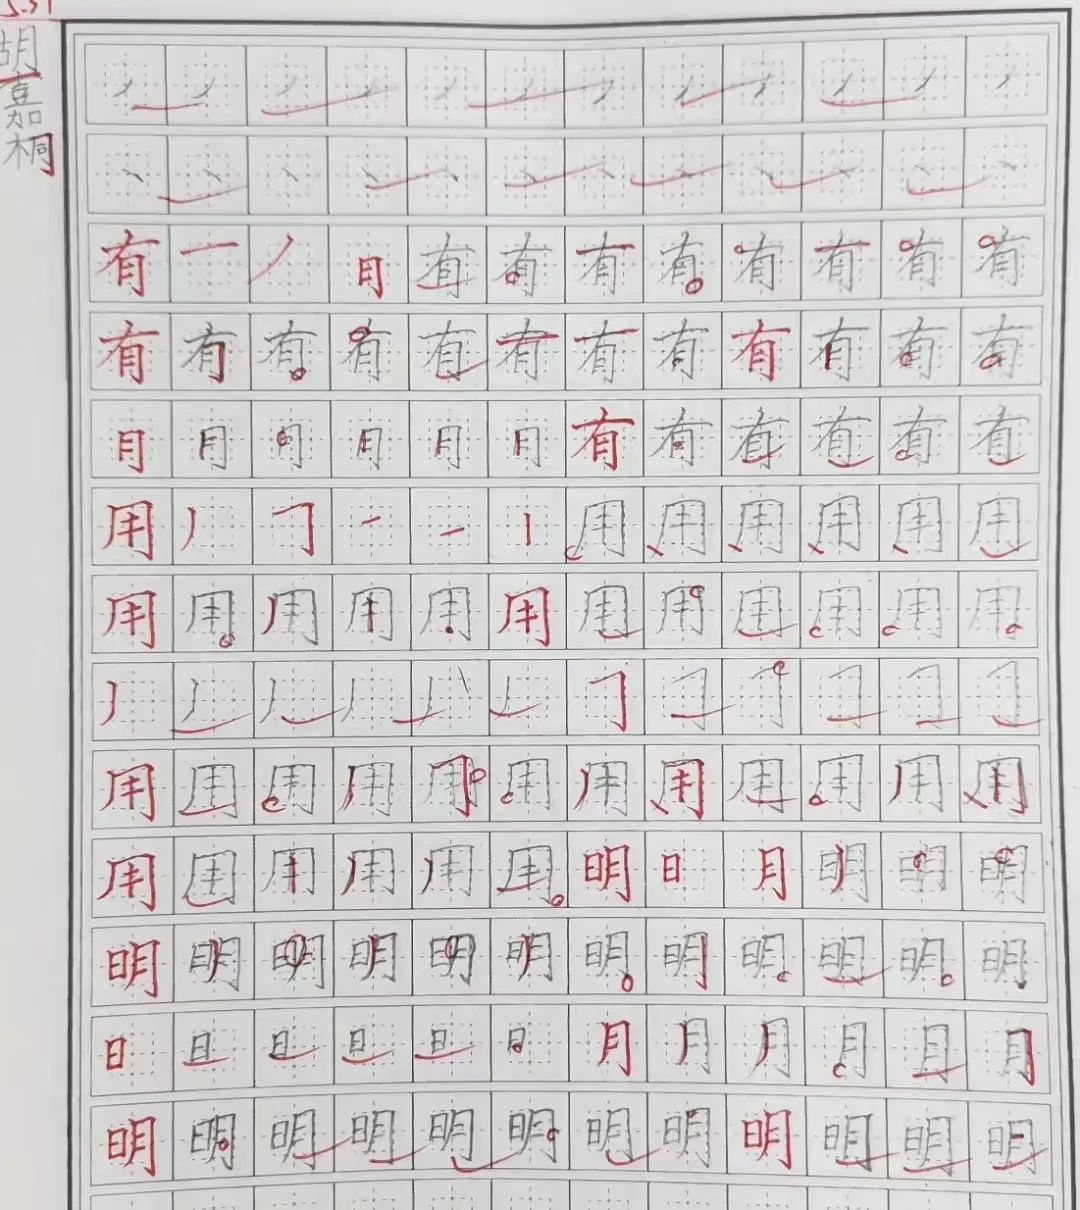 5.31
胡嘉桐
有 一 丿 月 有 有 有 有 有 有 有 有
有 有 有 有 有 有 有 有 有 有 有 有
月 月 月 月 月 月 有 有 有 有 有 有
用 丿 𠃌 一 一 丨 用 用 用 用 用 用
用 用 用 用 用 用 用 用 用 用 用 用
丿 丿 丿 丿 丿 丿 𠃌 𠃌 𠃌 𠃌 𠃌 𠃌
用 用 用 用 用 用 用 用 用 用 用 用
用 用 用 用 用 用 明 日 月 明 明 明
明 明 明 明 明 明 明 明 明 明 明 明
日 日 日 日 日 日 月 月 月 月 月 月
明 明 明 明 明 明 明 明 明 明 明 明